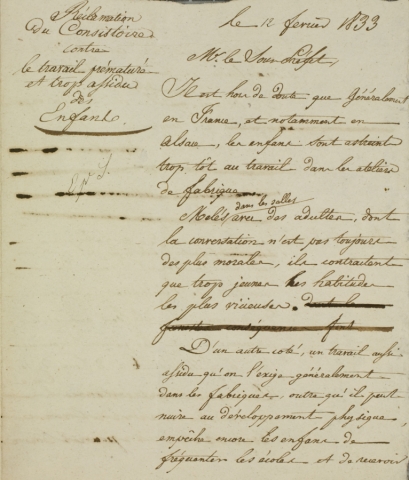 Réclamation
du Consistoire
contre
le travail prématuré
et trop assidu
des
Enfans.
le 12 fevrier 1833
Mr. le Sous-Préfet,
Il est hors de doute que généralement
en France, et notamment en
Alsace, les enfans sont astreint
trop tôt au travail dans les ateliers
de fabrique.
Melés dans les salles avec des adultes, dont
la conversation n'est pas toujours
des plus morales, ils contractent
que trop jeunes les habitudes
les plus vicieuses.
D'un autre coté, un travail aussi
assidu qu'on l'exige généralement
dans les fabriques, outre qu'il peut
nuire au développement physique,
empêche encore les enfans de
fréquenter les écoles et de recevoir